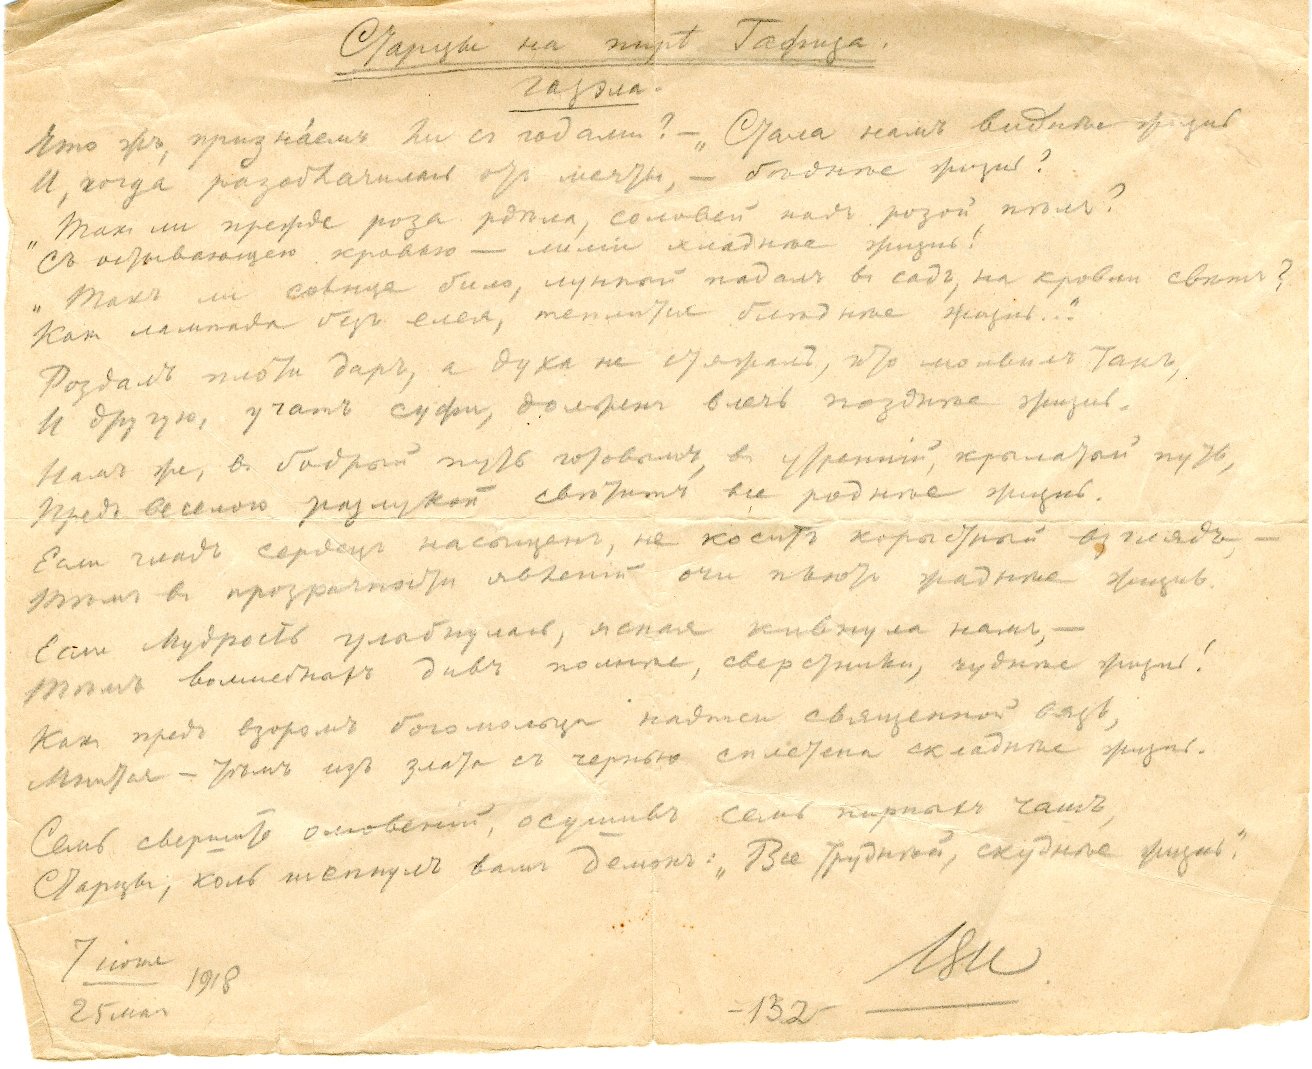 Старцы на пирѣ Гафиза.
Газэла.
Что жъ, признáемъ ли съ годами? – „Стала намъ виднѣе жизнь
И, когда разоблачилась отъ мечты, – бѣднѣе жизнь?
„Такъ ли прежде роза рдѣла, соловей надъ розой пѣлъ?
Съ остывающею кровью – хладнѣе жизнь!
„Такъ ли солнце било, лунный падалъ въ садъ, на кровли свѣтъ?
Какъ лампада безъ елея, теплится блѣднѣе жизнь..."
Роздалъ плоти даръ, а духа не стяжалъ, кто молвилъ такъ,
И другую, учатъ суфи, долженъ влечь позднѣе жизнь.
Намъ же, въ бодрый путь готовымъ, въ утренній, крылатый путь,
Предъ веселою разлукой свѣтитъ все роднѣе жизнь.
Если гладъ сердецъ насыщенъ, не коситъ корыстный взглядъ, –
Тѣмъ въ прозрачности явленій очи пьютъ жаднѣе жизнь.
Если Мудрость улыбнулась, ясная кивнула намъ, –
Тѣмъ волшебныхъ дивъ полнѣе, сверстники, чуднѣе жизнь!
Какъ предъ взоромъ богомольца надписи священной вязь,
Мнится – тѣмъ изъ злата съ чернью сплетена складнѣе жизнь.
Семь свершите омовеній, осушивъ семь пирныхъ чашъ,
Старцы, коль шепнулъ вамъ демонъ: „Все труднѣй, скуднѣе жизнь".
7 іюня
25 мая
1918
-132-